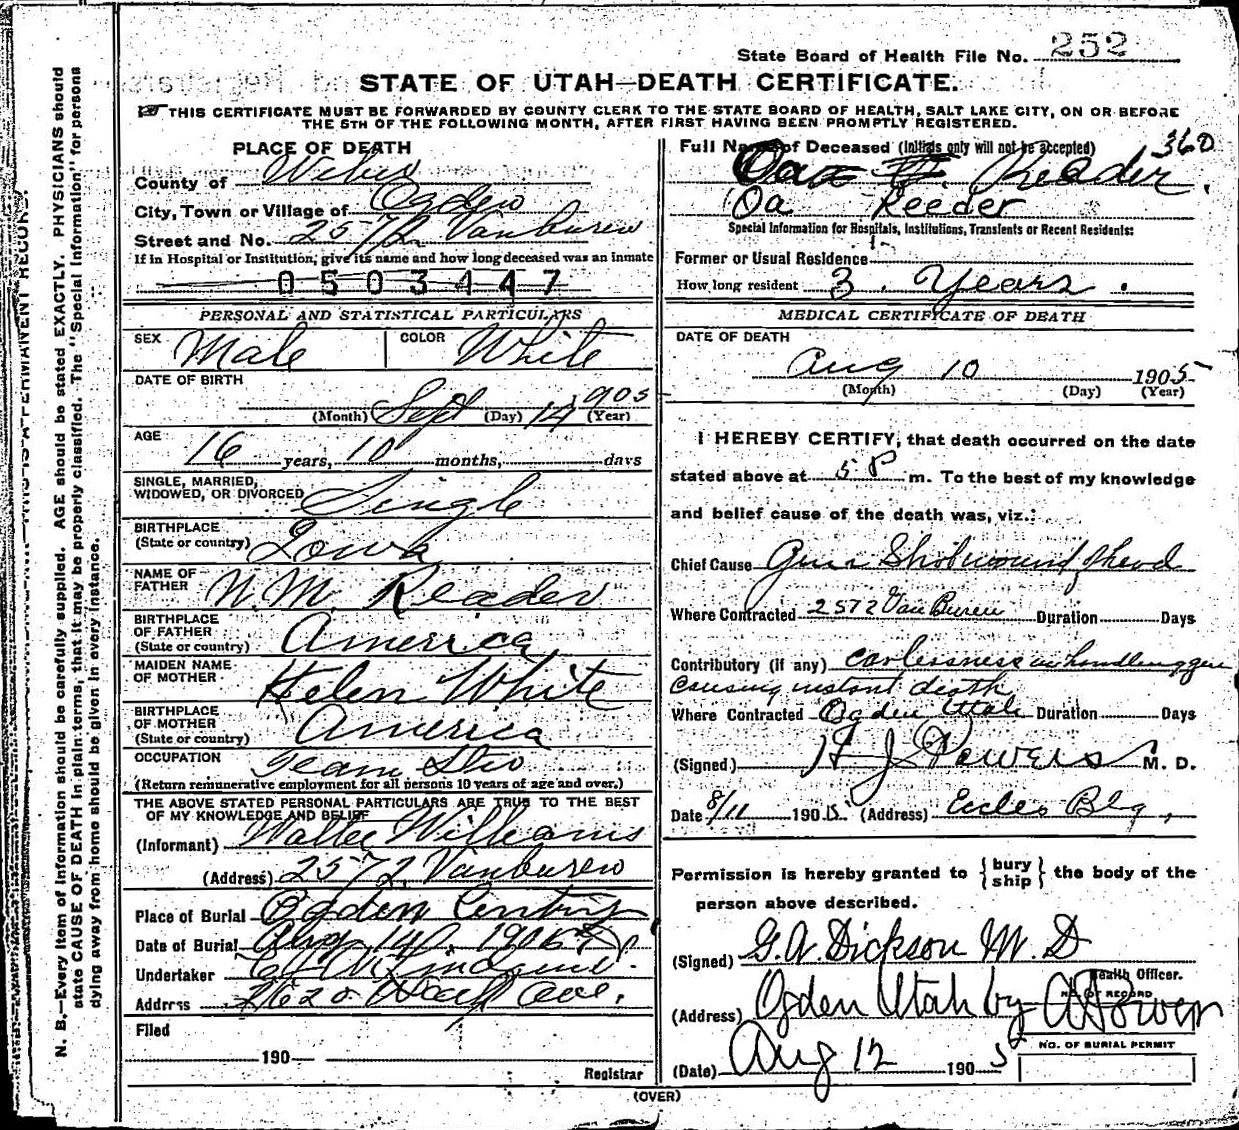 State Board of Health File No. 252
STATE OF UTAH—DEATH CERTIFICATE.
THIS CERTIFICATE MUST BE FORWARDED BY COUNTY CLERK TO THE STATE BOARD OF HEALTH, SALT LAKE CITY, ON OR BEFORE
THE 5TH OF THE FOLLOWING MONTH, AFTER FIRST HAVING BEEN PROMPTLY REGISTERED.
N. B.—Every item of information should be carefully supplied. AGE should be stated EXACTLY. PHYSICIANS should
state CAUSE OF DEATH in plain terms, that it may be properly classified. The "Special Information" for persons
dying away from home should be given in every instance.
PLACE OF DEATH
County of Weber
City, Town or Village of Ogden
Street and No. 2572 Vanburen
If in Hospital or Institution, give its name and how long deceased was an inmate
0503447
PERSONAL AND STATISTICAL PARTICULARS
SEX Male COLOR White
DATE OF BIRTH
(Month) Sept (Day) 14 1905 (Year)
AGE
16 years, 10 months, days
SINGLE, MARRIED,
WIDOWED, OR DIVORCED Single
BIRTHPLACE
(State or country) Iowa
NAME OF
FATHER N. M. Reader
BIRTHPLACE
OF FATHER
(State or country) America
MAIDEN NAME
OF MOTHER Helen White
BIRTHPLACE
OF MOTHER
(State or country) America
OCCUPATION Team
(Return remunerative employment for all persons 10 years of age and over.)
THE ABOVE STATED PERSONAL PARTICULARS ARE TRUE TO THE BEST
OF MY KNOWLEDGE AND BELIEF
(Informant) Walter Williams
(Address) 2572 Vanburen
Place of Burial Ogden
Date of Burial Aug 14
Undertaker
Address 2620 Ave.
Filed
190—
Registrar
Full Name of Deceased (Initials only will not be accepted) 360
Oa Reader.
Oa Reeder
Special Information for Hospitals, Institutions, Transients or Recent Residents:
Former or Usual Residence
How long resident 3. Years.
MEDICAL CERTIFICATE OF DEATH
DATE OF DEATH
Aug 10 1905
(Month) (Day) (Year)
I HEREBY CERTIFY, that death occurred on the date
stated above at 5 P m. To the best of my knowledge
and belief cause of the death was, viz.:
Chief Cause Gun Shot wound of head
Where Contracted 2572 Van Buren Duration Days
Contributory (if any) carlessness in handling gun
causing instant death
Where Contracted Ogden Utah Duration Days
(Signed) H J Powers M. D.
Date 8/11 1905 (Address) Eccles Blg,
Permission is hereby granted to { bury ship } the body of the
person above described.
(Signed) G. A. Dickson M. D
Health Officer.
NO. OF RECORD
(Address) Ogden Utah by
NO. OF BURIAL PERMIT
(Date) Aug 12 1905
(OVER)